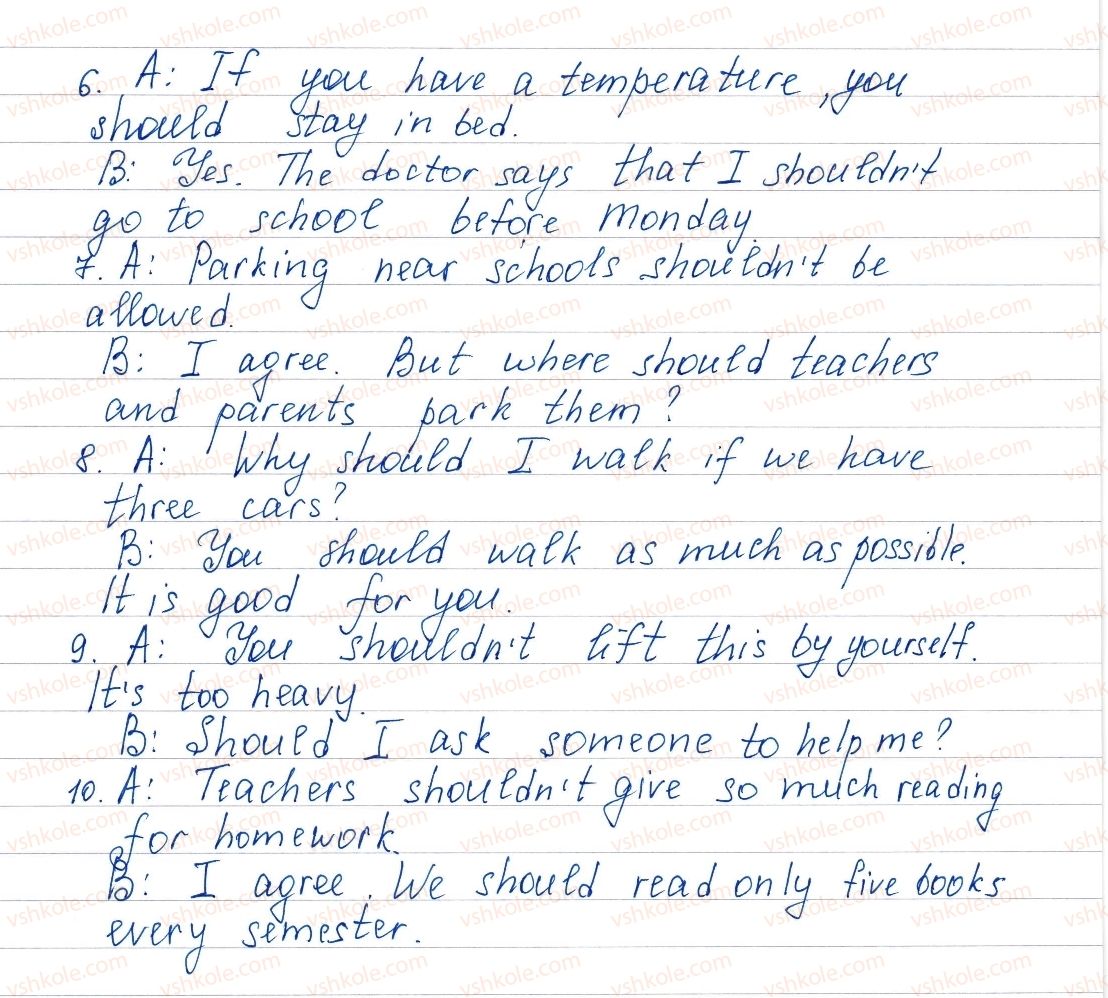 6. A: If you have a temperature, you
should stay in bed.
B: Yes. The doctor says that I shouldn't
go to school before Monday.
7. A: Parking near schools shouldn't be
allowed.
B: I agree. But where should teachers
and parents park them?
8. A: Why should I walk if we have
three cars?
B: You should walk as much as possible.
It is good for you.
9. A: You shouldn't lift this by yourself.
It's too heavy.
B: Should I ask someone to help me?
10. A: Teachers shouldn't give so much reading
for homework.
B: I agree. We should read only five books
every semester.
vshkole.com